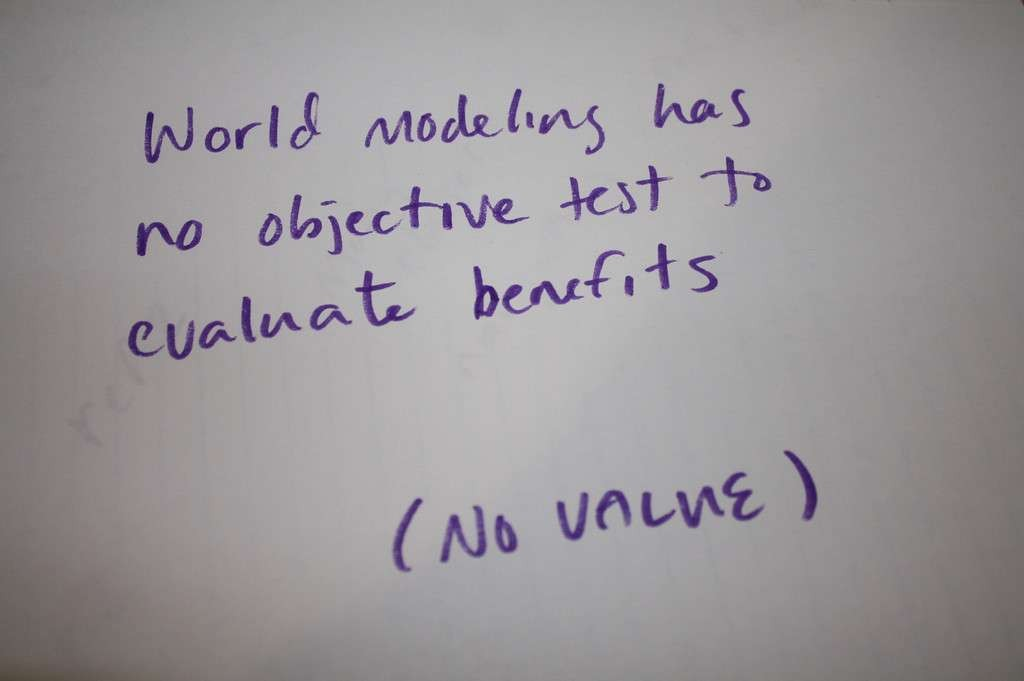 World modeling has
no objective test to
evaluate benefits
(NO VALUE)